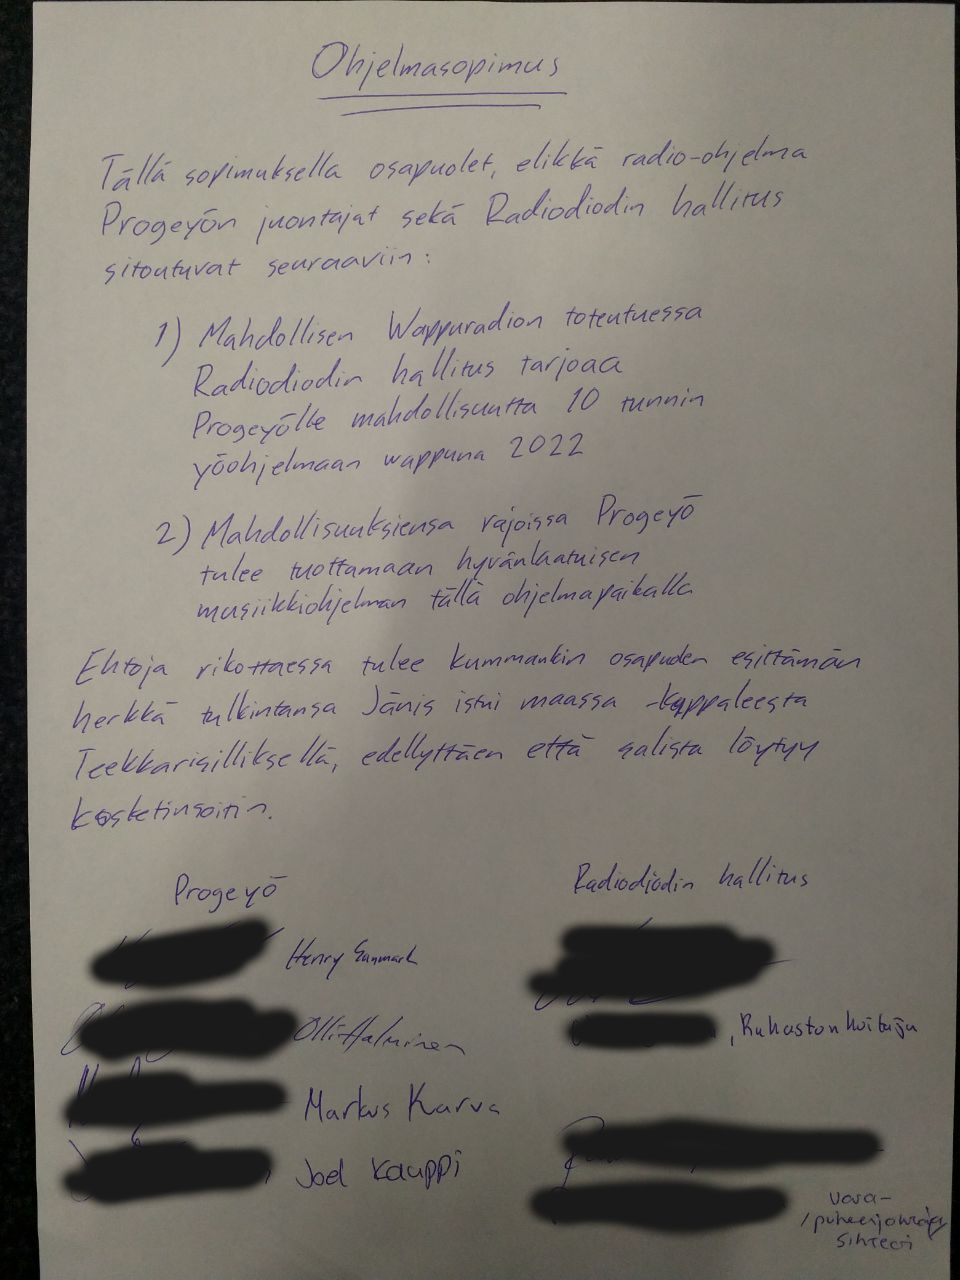 Ohjelmasopimus
Tällä sopimuksella osapuolet, elikkä radio-ohjelma
Progeyön juontajat sekä Radiodiodin hallitus
sitoutuvat seuraaviin:
1) Mahdollisen Wappuradion toteutuessa
Radiodiodin hallitus tarjoaa
Progeyölle mahdollisuutta 10 tunnin
yöohjelmaan wappuna 2022
2) Mahdollisuuksiensa rajoissa Progeyö
tulee tuottamaan hyvänlaatuisen
musiikkiohjelman tällä ohjelmapaikalla
Ehtoja rikottaessa tulee kummankin osapuolen esittämän
herkkä tulkintansa Jänis istui maassa -kappaleesta
Teekkarisilliksellä, edellyttäen että salista löytyy
kosketinsoitin.
Progeyö
Radiodiodin hallitus
Henry
Olli Halminen
, Rahastonhoitaja
Markus Karva
Joel Kauppi
vara-
/puheenjohtaja
sihteeri